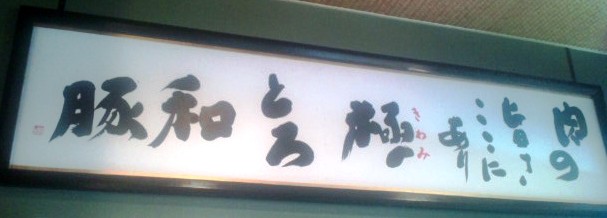 肉の
旨さ
ここに
あり
極
きわみ
とろ
和
豚